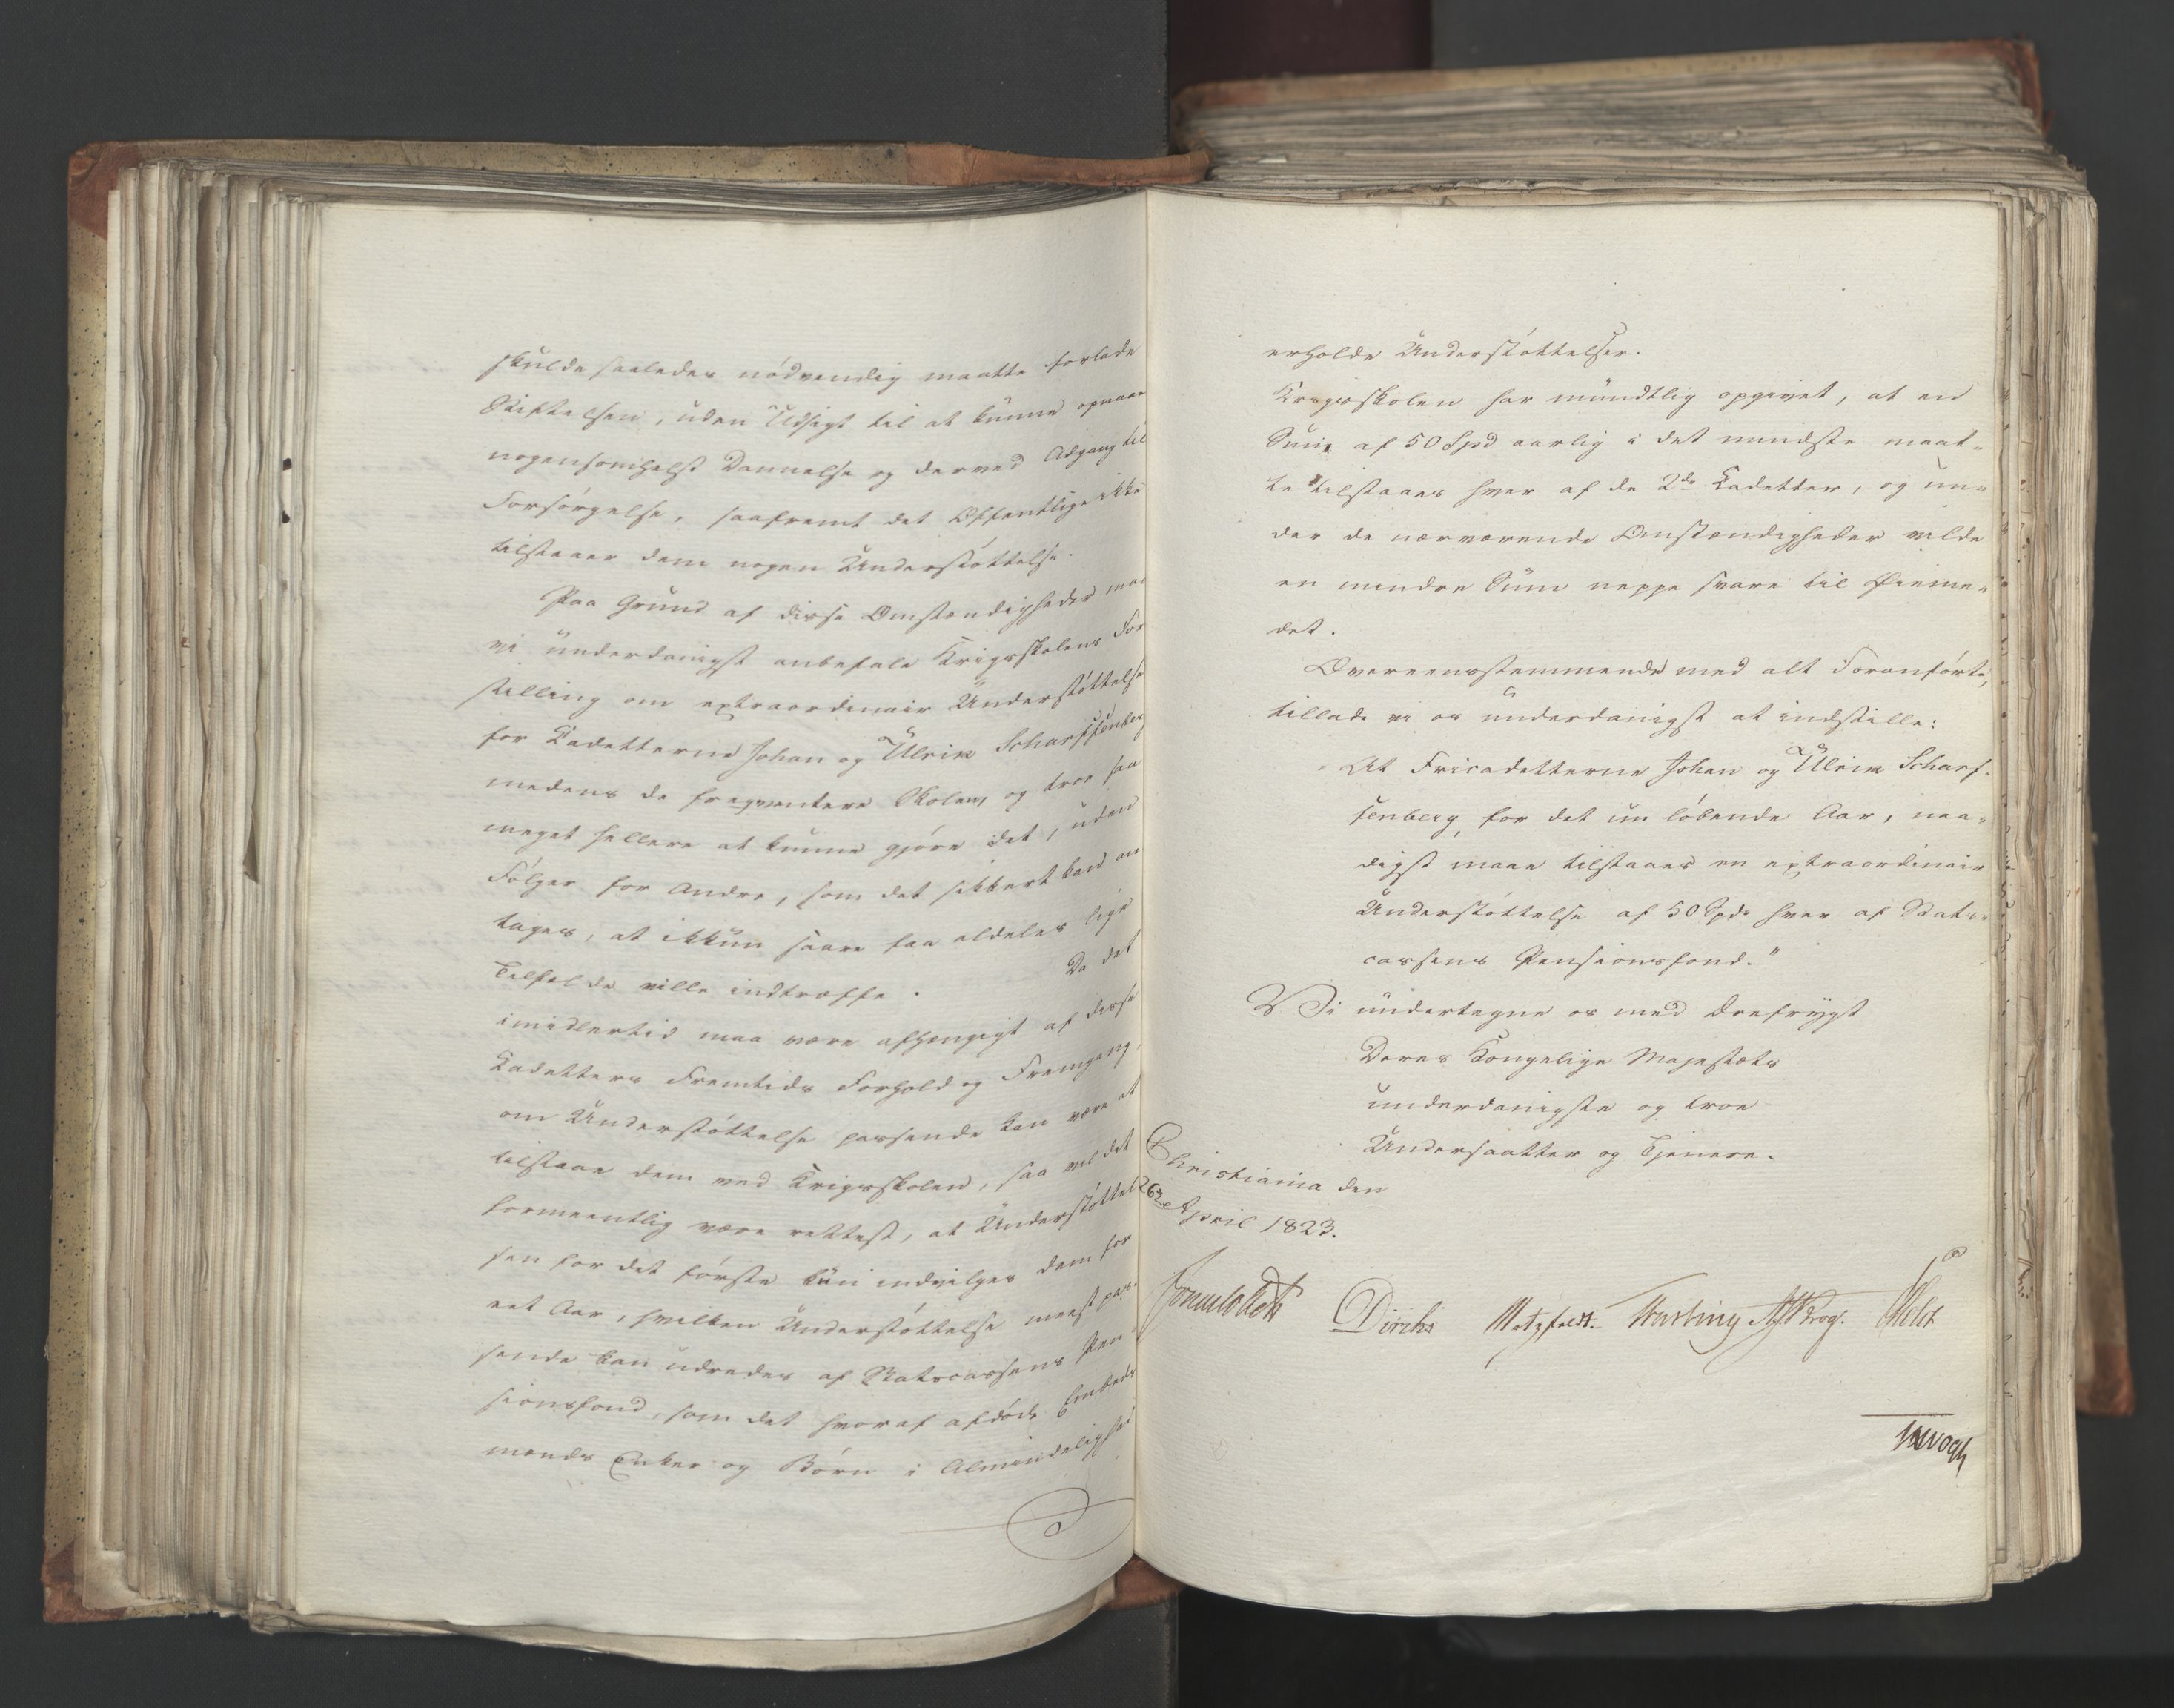 skulde saaledes nödvendig maatte forlade
Stiftelsen, uden Udsigt til at kunne opnaae
nogensomhelst Dannelse og derved Adgang til
Forsörgelse, saafremt det Offentlige ikke
tilstaaer dem nogen Understöttelse.
Paa Grund af disse Omstændigheder maa
vi underdanigst anbefale Krigsskolens Fore
stilling om extraordinair Understöttelse
for Cadetterne Johan og Ulrik Scharffenberg
medens de freqventere Skolen, og troe saa
meget hellere at kunne gjöre det, uden
Fölger for Andre, som det sikkert kan an
tages, at ikkun saare faa aldeles lige
Tilfælde ville indtræffe. Da det
imidlertid maa være afhængigt af disse
Cadetters Fremtids Forhold og Fremgang,
om Understöttelse passende kan være at
tilstaae dem ved Krigsskolen, saa vil det
formeentlig være rettest, at Understöttel
sen for det förste kun indvilges dem for
eet Aar, hvilken Understöttelse meest pas-
sende kan udredes af Statscassens Pen-
sionsfond, som det hvoraf afdöde Embeds
mænds Enker og Börn i Almindelighed
erholde Understöttelser.
Krigsskolen har mundtlig opgivet, at en
Sum af 50 Spd aarlig i det mindste maat-
te tilstaaes hver af de 2de Cadetter, og un-
der de nærværende Omstændigheder vilde
en mindre Sum neppe svare til Øieme-
det.
Overeensstemmende med alt Foranförte,
tillade vi os underdanigst at indstille:
"At Fricadetterne Johan og Ulrik Scharf-
fenberg, for det nu löbende Aar, naa-
digst maae tilstaaes en extraordinair
Understöttelse af 50 Spd. hver af Stats-
cassens Pensionsfond."
Vi undertegne os med Ærefrygt
Deres Kongelige Majestæts
underdanigste og troe
Undersaatter og Tjenere.
Christiania den
26de April 1823.
Sommerhielm Diriks Motzfeldt. Fasting Krog. Holst